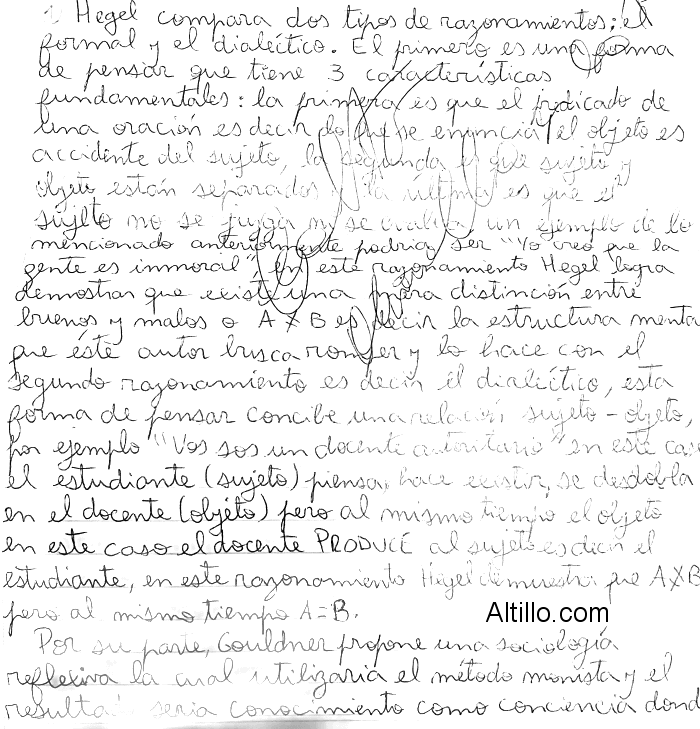 Hegel compara dos tipos de razonamientos: el
formal y el dialéctico. El primero es una forma
de pensar que tiene 3 características
fundamentales: la primera es que el predicado de
una oración es decir lo que se enuncia, el objeto es
accidente del sujeto, la segunda es que sujeto y
objeto están separados y la última es que el
sujeto no se juzga ni se evalúa un ejemplo de lo
mencionado anteriormente podria ser "Yo creo que la
gente es inmoral", en este razonamiento Hegel logra
demostrar que existe una mera distinción entre
buenos y malos o A ≠ B es decir la estructura mental
que éste autor busca romper y lo hace con el
segundo razonamiento es decir el dialéctico, esta
forma de pensar concibe una relación sujeto-objeto,
por ejemplo "Vos sos un docente autoritario" en este caso
el estudiante (sujeto) piensa, hace existir, se desdobla
en el docente (objéto) pero al mismo tiempo el objeto
en este caso el docente PRODUCE al sujeto es decir el
estudiante, en este razonamiento Hegel demuestra que A≠B
pero al mismo tiempo A=B.
Altillo.com
Por su parte, Gouldner propone una sociología
reflexiva la cual utilizaria el método monista y el
resultado seria conocimiento como conciencia dond